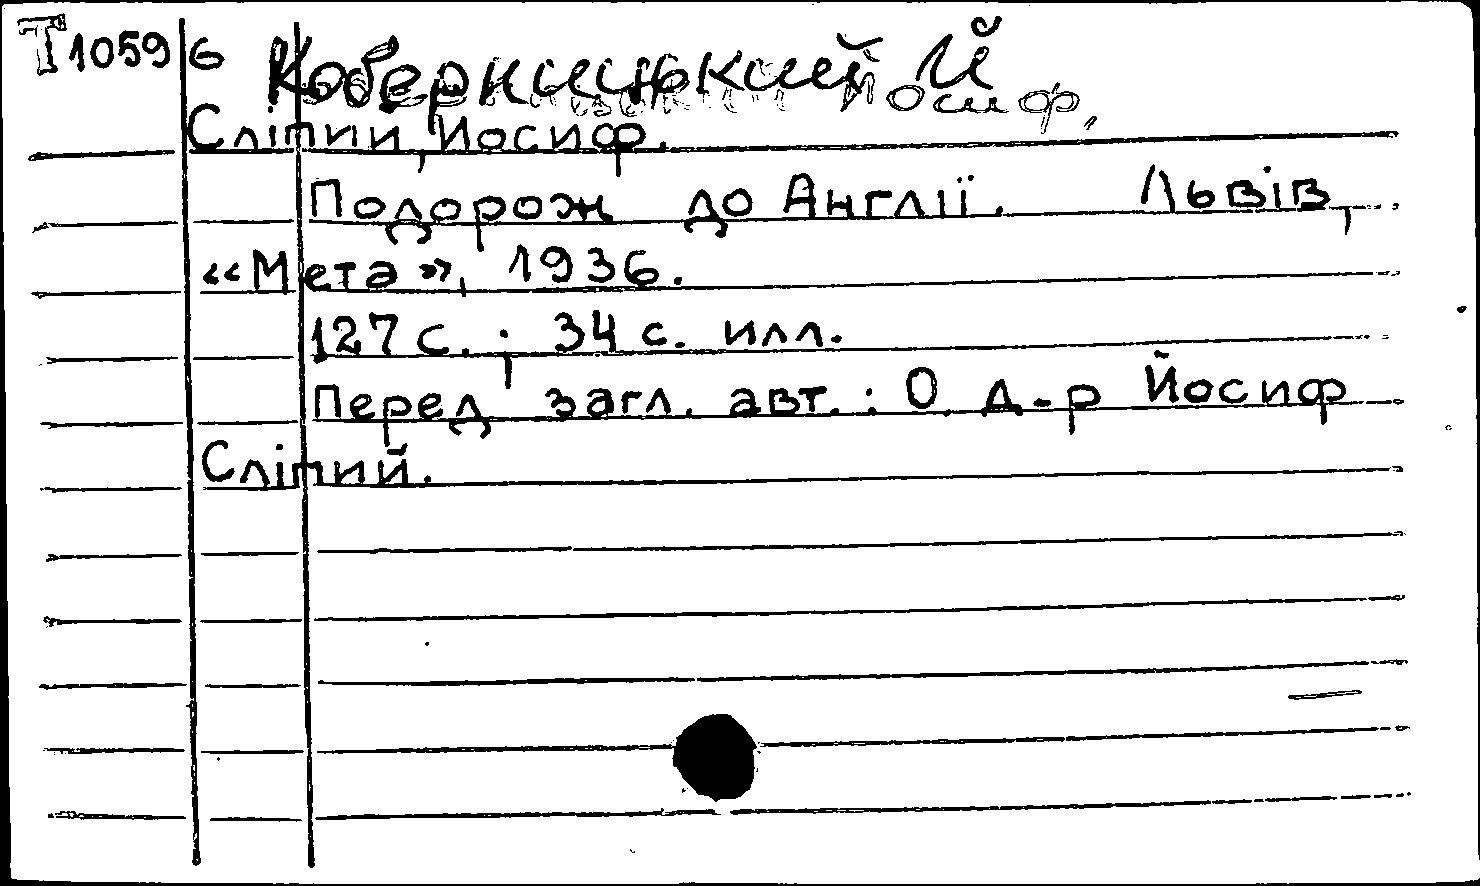 Т10596 Коберницький Й
Йосиф,
Сліпий, Йосиф.
Подорож до Англії. Львів,
«Мета», 1936.
127 с. ; 34 с. илл.
Перед загл. авт. : О. д-р Йосиф
Сліпий.